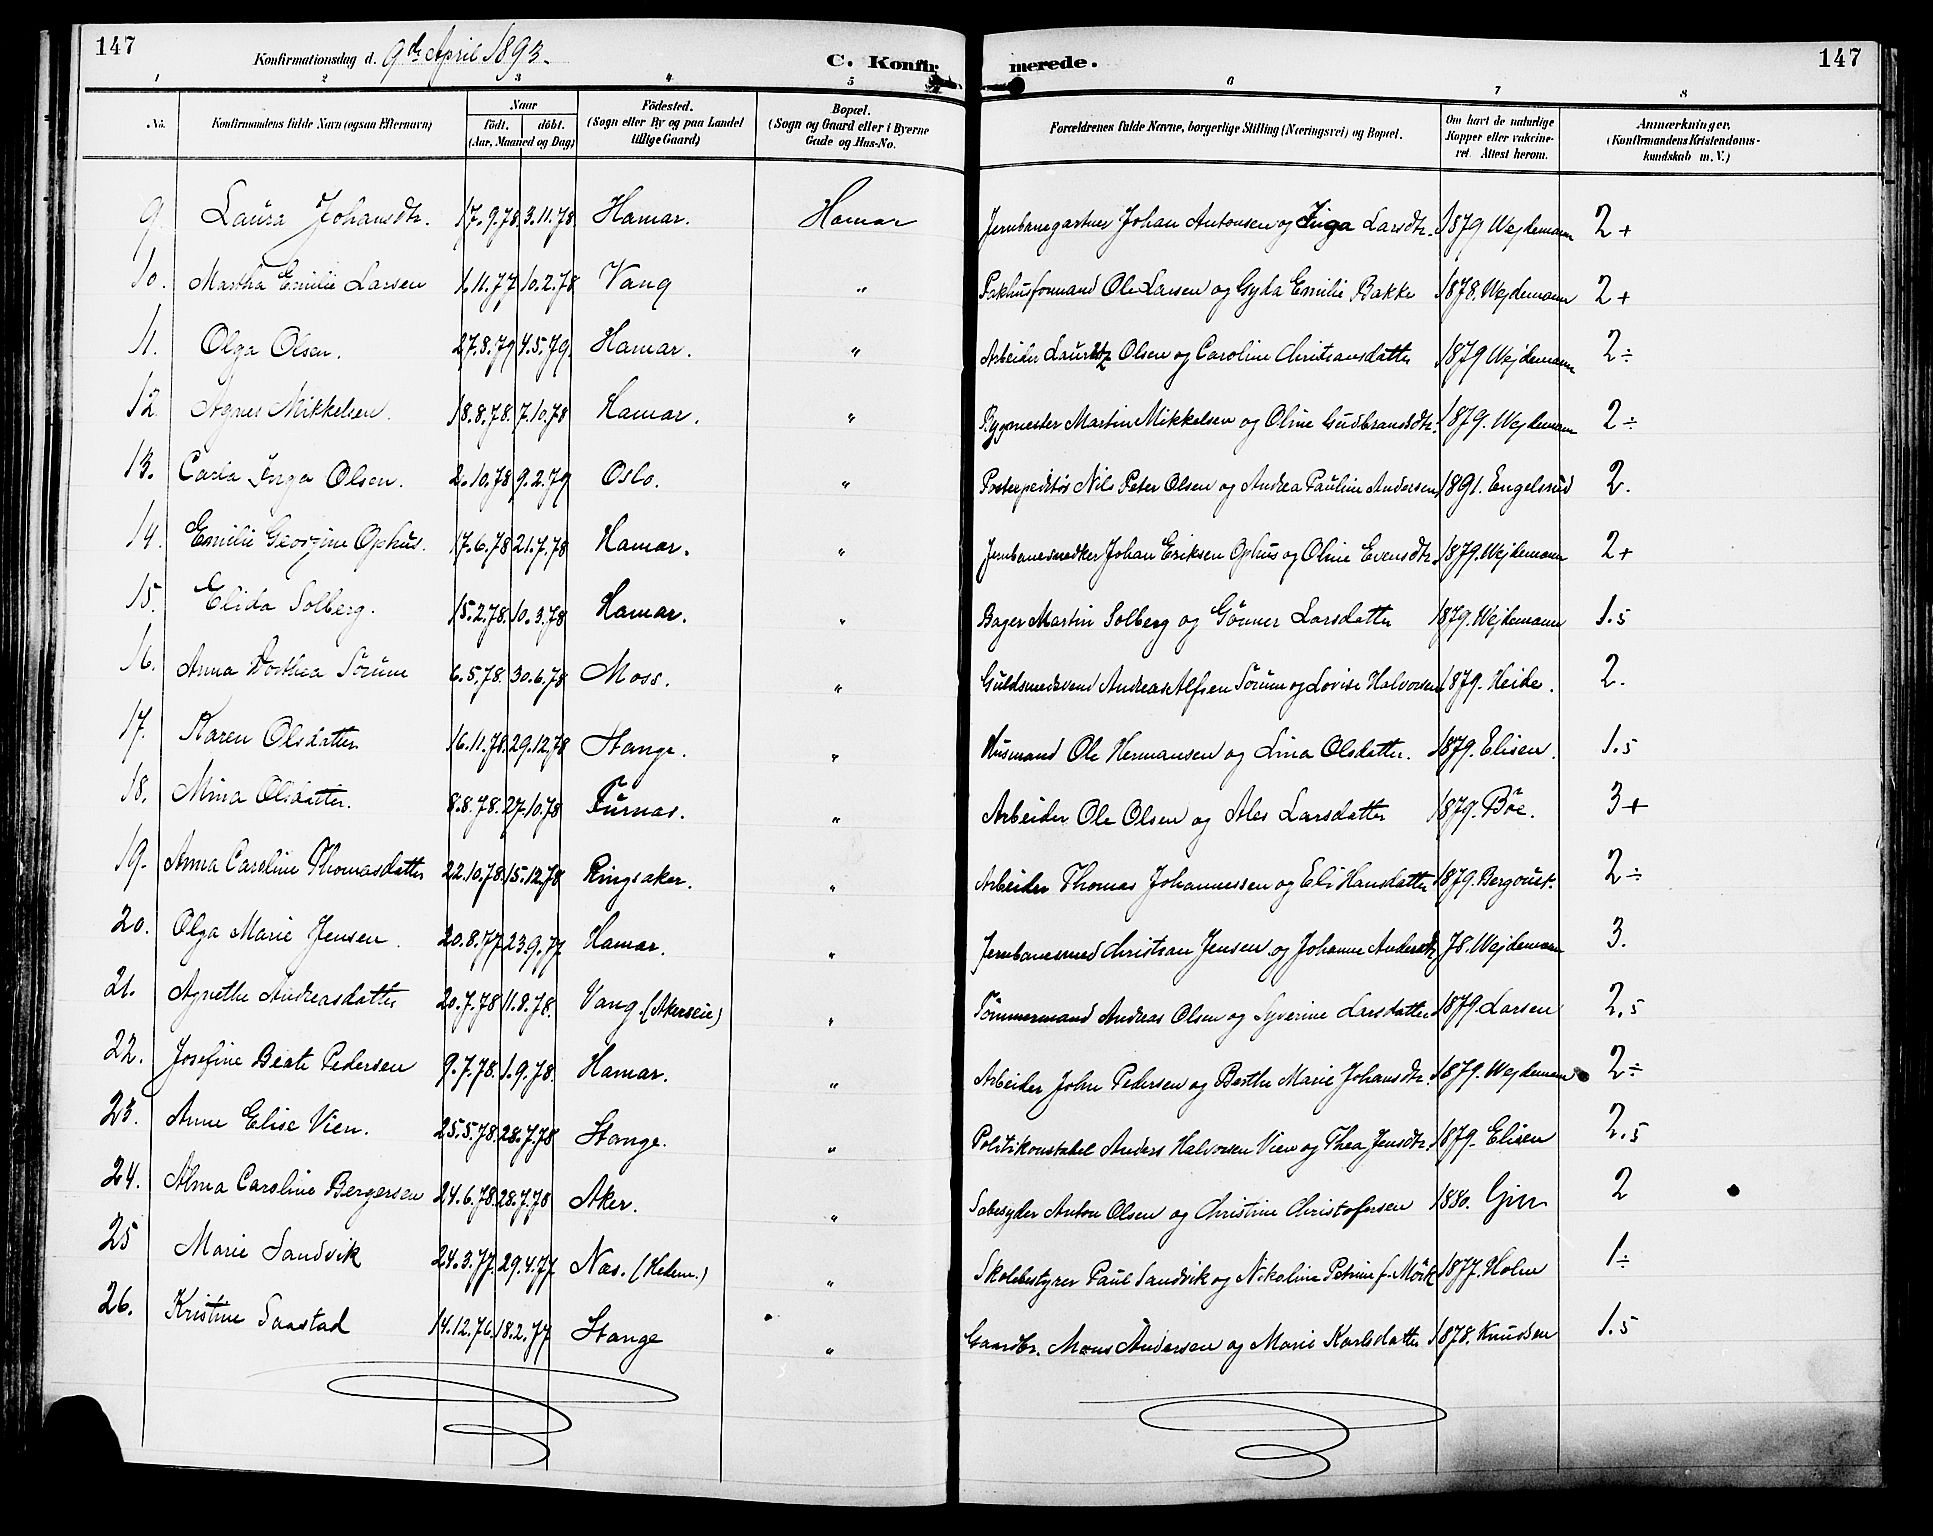 147
Konfirmationsdag d. 9de April 1893.
C. Konfir
merede.
147
1 2 3 4 5 6 7 8
No. Konfirmandens fulde Navn (ogsaa Efternavn) Naar født. døbt. (Aar, Maaned og Dag) Födested. (Sogn eller By og paa Landet tillige Gaard) Bopæl. (Sogn og Gaard eller i Byerne Gade og Hus-No. Forældrenes fulde Navne, borgerlige Stilling (Næringsvei) og Bopæl. Om havt de naturlige Kopper eller vakcineret. Attest herom. Anmærkninger. (Konfirmandens Kristendomskundskab m. V.)
9. Laura Johansdtr. 17.9.78 3.11.78 Hamar. Hamar Jernbanegartner Johan Antonsen og Inga Larsdtr. 1879 Wejdemann 2+
10. Martha Emilie Larsen 1.11.77 10.2.78 Vang " Pakhusformand Ole Larsen og Gyda Emilie Bakke 1878. Wejdemann 2+
11. Olga Olsen. 27.8.79 4.5.79. Hamar. " Arbeider Lauritz Olsen og Caroline Christiansdatter 1879 Wejdemann 2÷
12. Agnes Mikkelsen. 18.8.78. 7.10.78 Hamar. " Bygmester Martin Mikkelsen og Oline Gudbrandsdtr. 1879. Wejdemann 2÷
13. Carla Inga Olsen. 2.10.78 9.2.79 Oslo. " Postexpeditör Nils Peter Olsen og Andrea Pauline Andersen 1891. Engelsrud 2.
14. Emilie Georgine Ophus. 17.6.78 21.7.78 Hamar. " Jernbanesnedker Johan Eriksen Ophus og Oline Evensdtr. 1879. Wejdemann 2+
15. Elida Solberg. 15.2.78. 10.3.78 Hamar. " Bager Martin Solberg og Gönner Larsdatter 1879. Wejdemann 1.5
16. Anna Dorthea Sörum 6.5.78. 30.6.78 Moss. " Guldsmedsvend Andreas Alfsen Sörum og Lovise Halvorsen 1879. Heide. 2.
17. Karen Olsdatter 16.11.78. 29.12.78 Stange. " Husmand Ole Hermansen og Lina Olsdatter. 1879. Elisen. 1.5
18. Mina Olsdatter. 8.8.78. 27.10.78 Furnas. " Arbeider Ole Olsen og Ales Larsdatter 1879. Böe. 3+
19. Anna Caroline Thomasdatter 22.10.78. 15.12.78 Ringsaker. " Arbeider Thomas Johannessen og Eli Hansdatter 1879. Bergouet. 2÷
20. Olga Marie Jensen. 20.8.77. 23.9.77. Hamar. " Jernbanesmed Christian Jensen og Johanne Andersdtr. 78. Wejdemann 3.
21. Agnethe Andreasdatter 20.7.78 11.8.78. Vang. (Akerseie) " Tömmermand Andreas Olsen og Syverine Larsdatter 1879. Larsen 2.5
22. Josefine Beate Pedersen 9.7.78. 1.9.78. Hamar. " Arbeider John Pedersen og Berthe Marie Johansdtr. 1879. Wejdemann 2÷
23. Anne Elise Vien. 25.5.78. 28.7.78 Stange. " Politikonstabel Anders Halvorsen Vien og Thea Jensdtr. 1879. Elisen 2.5
24. Alma Caroline Bergersen 24.6.78. 28.7.78 Aker. " Anton Olsen og Christine Christofersen 1880. 2
25 Marie Sandvik 24.3.77. 29.4.77 Nas. (Hedm.) " Skolebestyrer Paul Sandvik og Nikoline Petrine f. Mörk 1877. Holm 1÷
26. Kristine Saastad 14.12.76. 18.2.77 Stange " Gaardbr. Mons Andersen og Marie Karlsdatter 1878. Knudsen 1.5